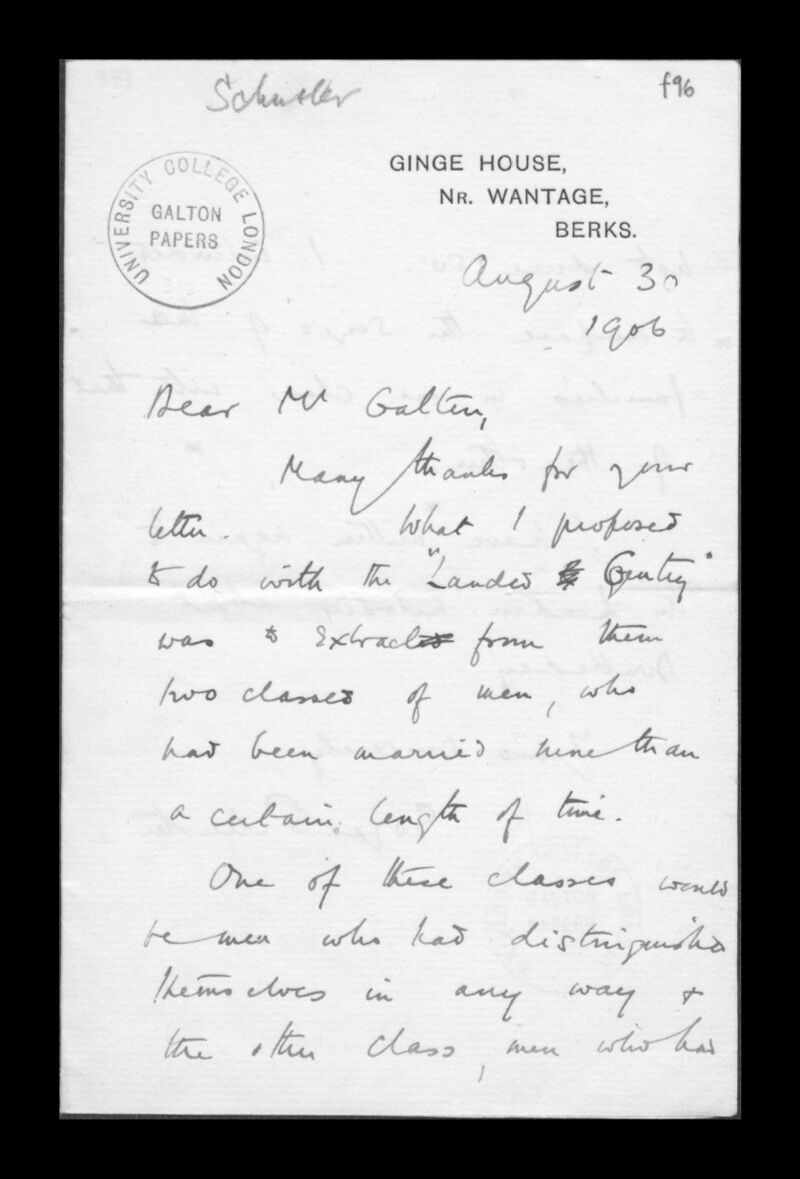 Schuster
f96
UNIVERSITY COLLEGE LONDON
GALTON
PAPERS
GINGE HOUSE,
NR. WANTAGE,
BERKS.
August 30
1906
Dear Mr Galton,
Many thanks for your
letter. What I proposed
to do with the "Landed Gentry"
was to Extract from them
two classes of men, who
had been married more than
a certain length of time.
One of these classes would
be men who had distinguished
themselves in any way &
the other class, men who had